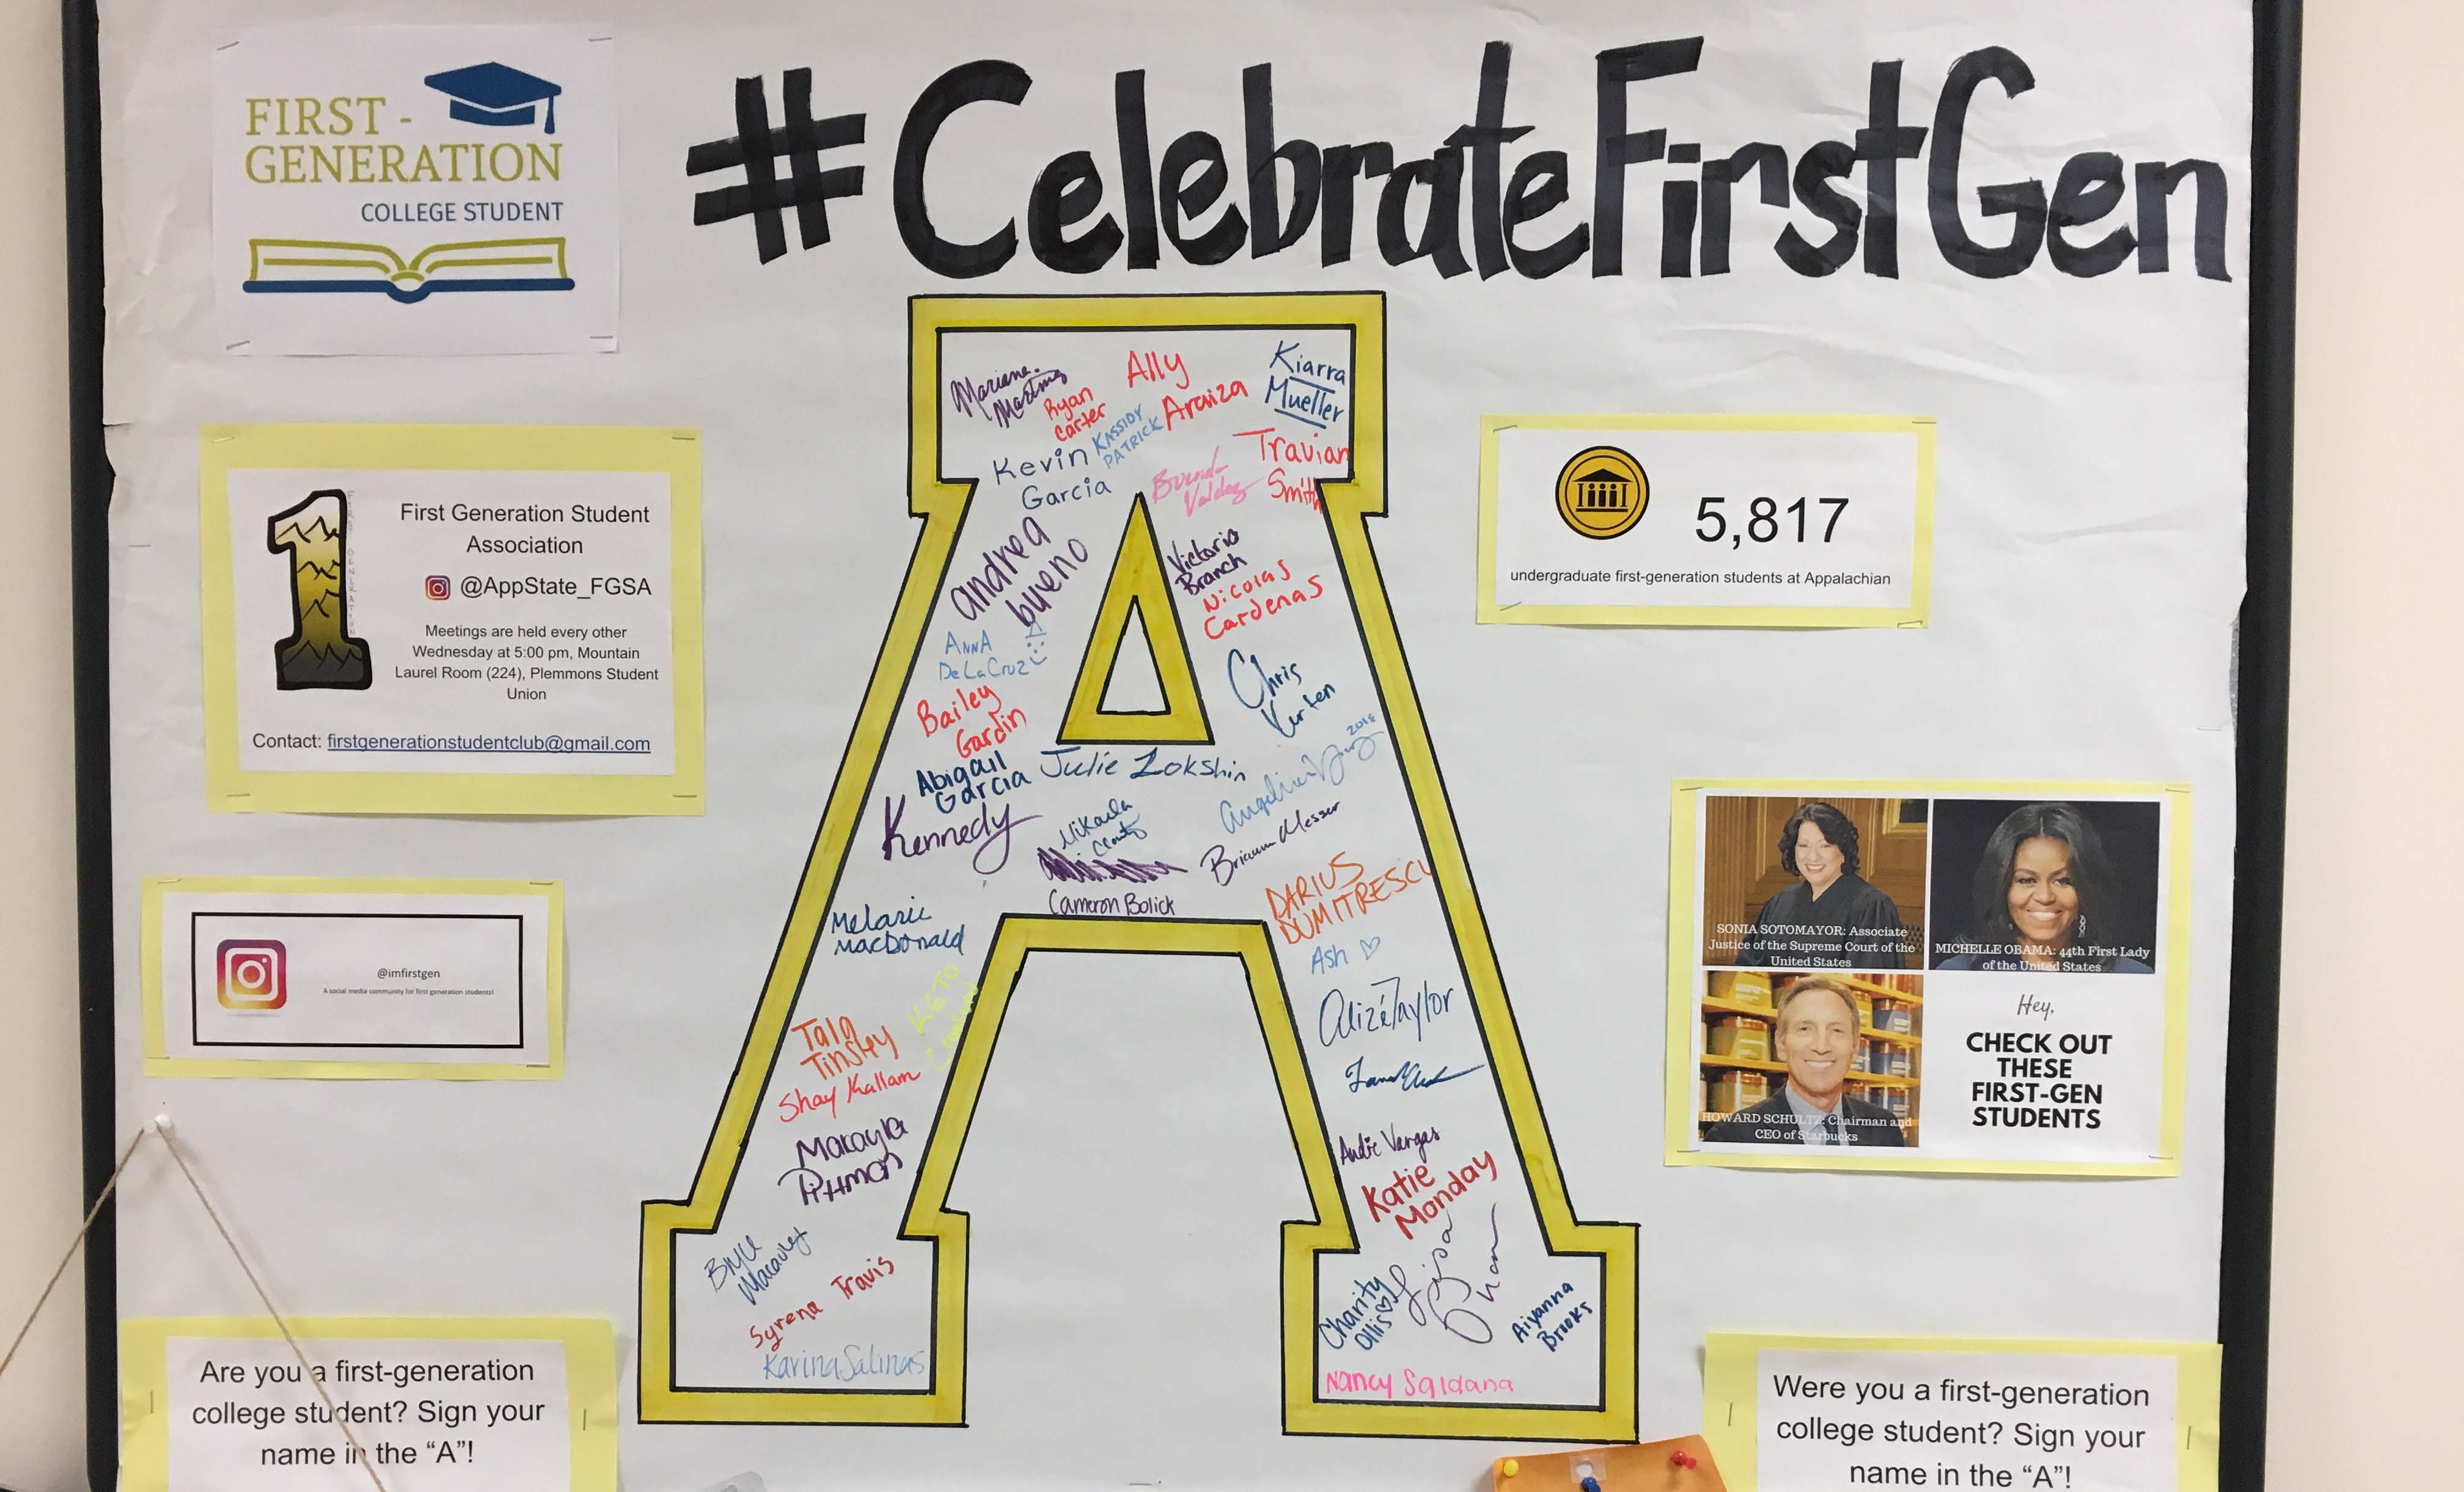 #CelebrateFirstGen
FIRST -
GENERATION
COLLEGE STUDENT
FIRST GENERATION
First Generation Student
Association
@AppState_FGSA
Meetings are held every other
Wednesday at 5:00 pm, Mountain
Laurel Room (224), Plemmons Student
Union
Contact: firstgenerationstudentclub@gmail.com
@imfirstgen
A social media community for first generation students!
Are you a first-generation
college student? Sign your
name in the “A”!
Mariana
Ryan
Carter
Ally
Araiza
KASSIDY
PATRICK
Kiarra
Mueller
Kevin
Garcia
Valdez
Travian
Smith
andrea
bueno
Victoria
Branch
Nicolas
Cardenas
AnnA
DeLaCruz
Chris
Bailey
Gardin
2018
Abigail
Garcia
Julie Zokshin
Kennedy
Mikaela
Messer
Cameron Bolick
DARIUS
DUMITRESCU
Melanie
MacDonald
Ash ♡
KETO
Alizé Taylor
Tala
Tinsley
Shay Kallam
Makayla
Pittman
Andie Vargas
Katie
Monday
Bryce
Macauley
Syrena Travis
Karina Salinas
Charity
Ollis♡
Lisa
Aiyanna
Brooks
Nancy Saldana
5,817
undergraduate first-generation students at Appalachian
SONIA SOTOMAYOR: Associate
Justice of the Supreme Court of the
United States
MICHELLE OBAMA: 44th First Lady
of the United States
HOWARD SCHULTZ: Chairman and
CEO of Starbucks
Hey,
CHECK OUT
THESE
FIRST-GEN
STUDENTS
Were you a first-generation
college student? Sign your
name in the “A”!